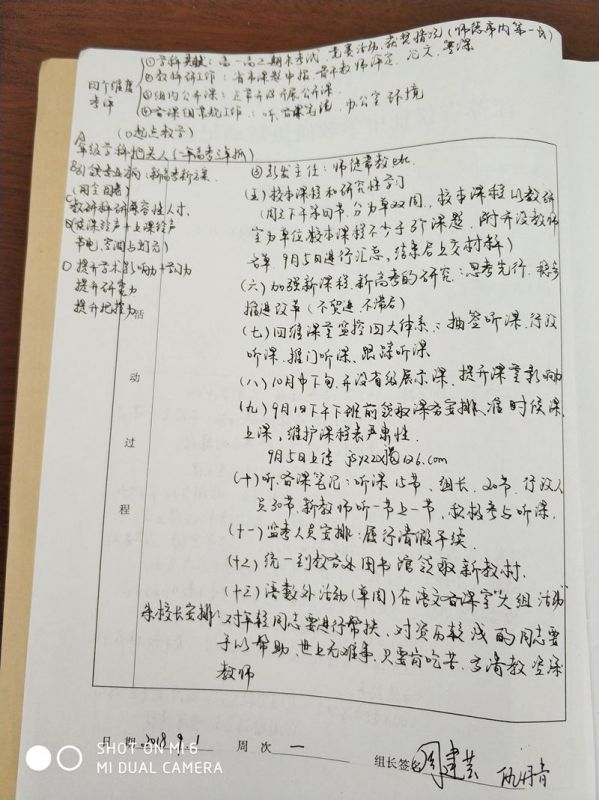 ①学科贡献：高一高二期末考试、竞赛活动、获奖情况（师德市内第一线）
四个维度
考评
②教科研工作：省市课题申报、骨干教师评定、论文、赛课
③组内公开课：正常开设开展公开课
④备课组常规工作：听、备课笔记、办公室环境
（O起点教学）
A 年级学科把关人（一年高考三年抓）
新高考新课
（周全因卷）
C 教研科研兼容性人才
（候课铃声+上课铃声
节电、空调与灯各）
D 提升学术影响力+学习力
提升研究力
提升把控力
活动过程
主任：师徒常教etc.
（五）校本课程和研究性学习
（周三下午第四节，分为单双周，校本课程以教研
室为单位，校本课程不少于3个课题，附开设教师
名单，9月5日进行汇总，结果后上交材料）
（六）加强新课程、新高考的研究：思考先行，稳步
推进改革（不贸进、不滞后）
（七）四维课堂监控四大体系：抽签听课、行政
听课、推门听课、跟踪听课
（八）10月中下旬，开设省级展示课，提升课堂影响力
（九）9月1日下午下班前领取课务安排，准时候课、
上课，维护课程表严肃性
9月5日上传 126.com
（十）听、备课笔记：听课15节、组长20节、行政人
员30节，新教师听一节上一节，积极参与听课.
（十一）监考人员安排：履行请假手续.
（十二）统一到教务处图书馆领取新教材.
（十三）语数外活动（单周）在语文备课室"大组活动"
朱校长安排：对年轻同志要进行帮扶，对资历较浅的同志要
予以帮助，世上无难事，只要肯吃苦，多请教资深
教师
日 期 2018.9.1 周 次 一
组长签名 周建芸
SHOT ON MI 6
MI DUAL CAMERA